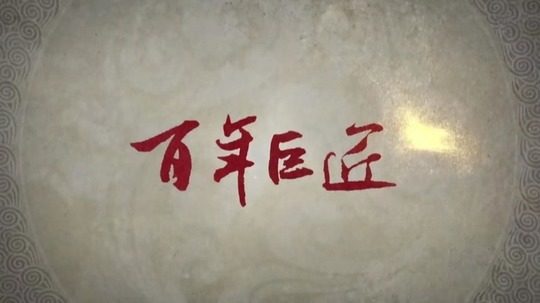 百年巨匠